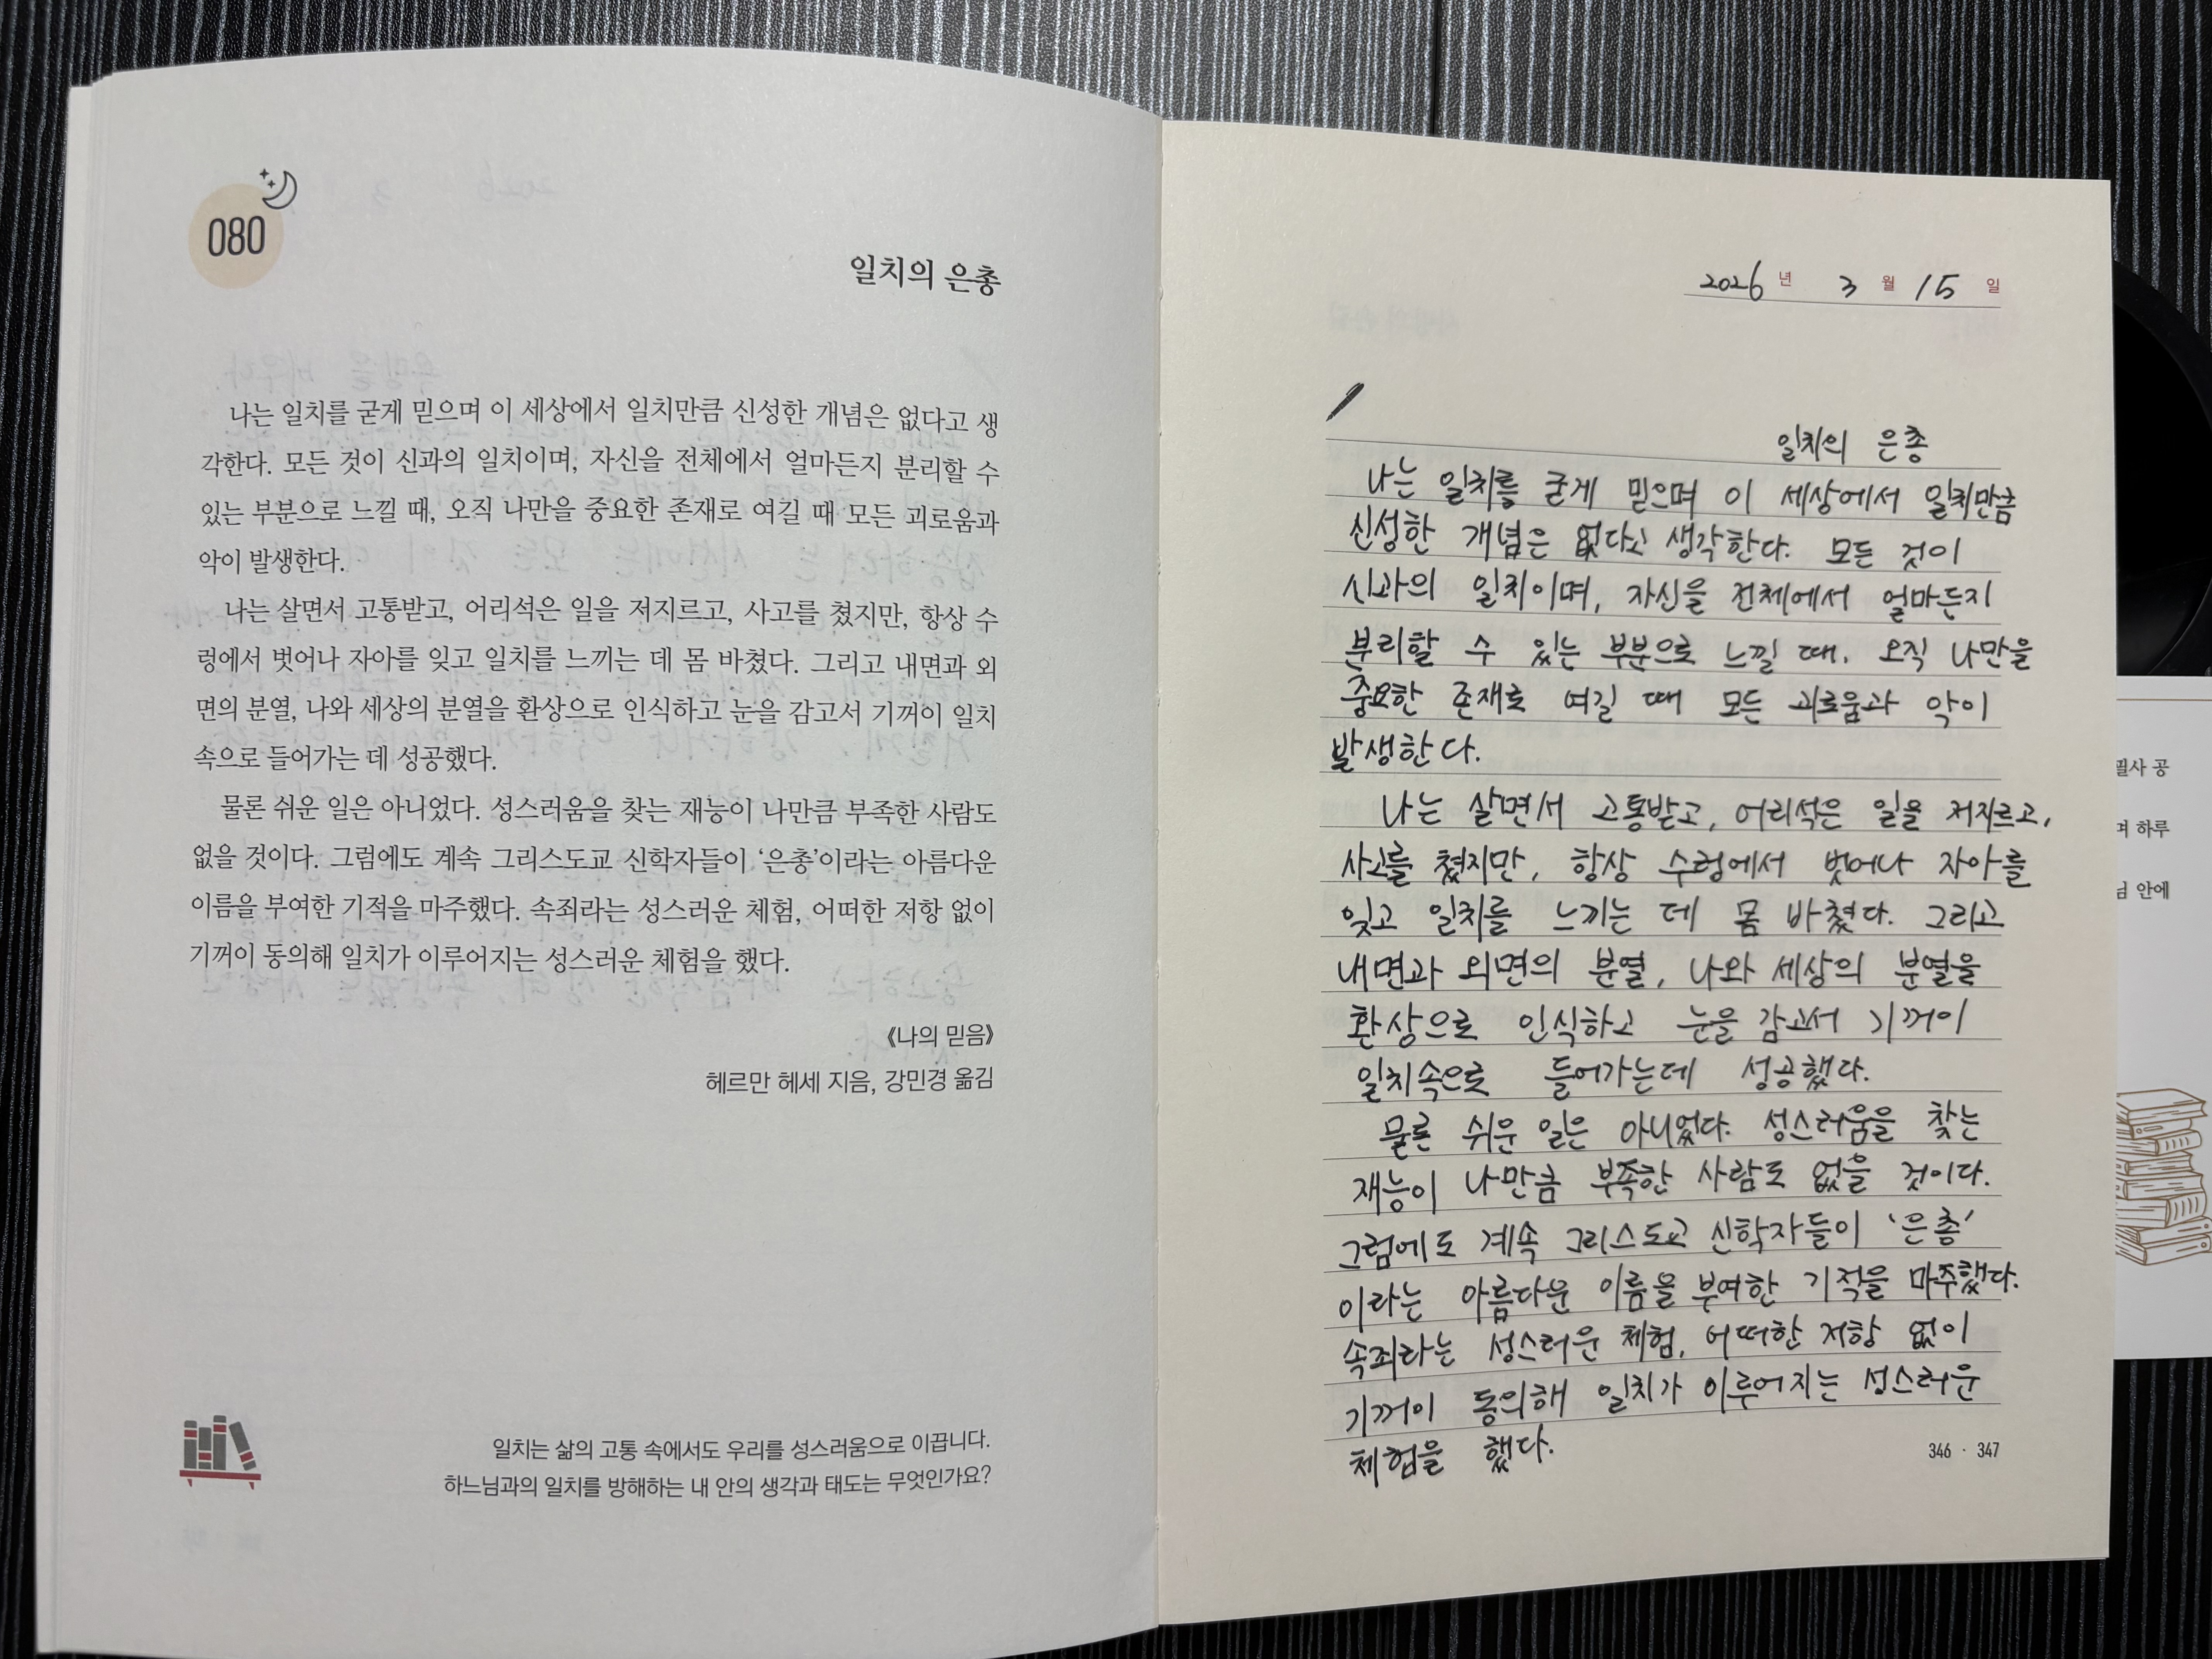 080
일치의 은총
나는 일치를 굳게 믿으며 이 세상에서 일치만큼 신성한 개념은 없다고 생
각한다. 모든 것이 신과의 일치이며, 자신을 전체에서 얼마든지 분리할 수
있는 부분으로 느낄 때, 오직 나만을 중요한 존재로 여길 때 모든 괴로움과
악이 발생한다.
나는 살면서 고통받고, 어리석은 일을 저지르고, 사고를 쳤지만, 항상 수
렁에서 벗어나 자아를 잊고 일치를 느끼는 데 몸 바쳤다. 그리고 내면과 외
면의 분열, 나와 세상의 분열을 환상으로 인식하고 눈을 감고서 기꺼이 일치
속으로 들어가는 데 성공했다.
물론 쉬운 일은 아니었다. 성스러움을 찾는 재능이 나만큼 부족한 사람도
없을 것이다. 그럼에도 계속 그리스도교 신학자들이 ‘은총’이라는 아름다운
이름을 부여한 기적을 마주했다. 속죄라는 성스러운 체험, 어떠한 저항 없이
기꺼이 동의해 일치가 이루어지는 성스러운 체험을 했다.
《나의 믿음》
헤르만 헤세 지음, 강민경 옮김
일치는 삶의 고통 속에서도 우리를 성스러움으로 이끕니다.
하느님과의 일치를 방해하는 내 안의 생각과 태도는 무엇인가요?
2026 년 3 월 15 일
일치의 은총
나는 일치를 굳게 믿으며 이 세상에서 일치만큼
신성한 개념은 없다고 생각한다. 모든 것이
신과의 일치이며, 자신을 전체에서 얼마든지
분리할 수 있는 부분으로 느낄 때, 오직 나만을
중요한 존재로 여길 때 모든 괴로움과 악이
발생한다.
나는 살면서 고통받고, 어리석은 일을 저지르고,
사고를 쳤지만, 항상 수렁에서 벗어나 자아를
잊고 일치를 느끼는 데 몸 바쳤다. 그리고
내면과 외면의 분열, 나와 세상의 분열을
환상으로 인식하고 눈을 감고서 기꺼이
일치속으로 들어가는데 성공했다.
물론 쉬운 일은 아니었다. 성스러움을 찾는
재능이 나만큼 부족한 사람도 없을 것이다.
그럼에도 계속 그리스도교 신학자들이 ‘은총’
이라는 아름다운 이름을 부여한 기적을 마주했다.
속죄라는 성스러운 체험, 어떠한 저항 없이
기꺼이 동의해 일치가 이루어지는 성스러운
체험을 했다.
346 · 347
필사 공
며 하루
님 안에